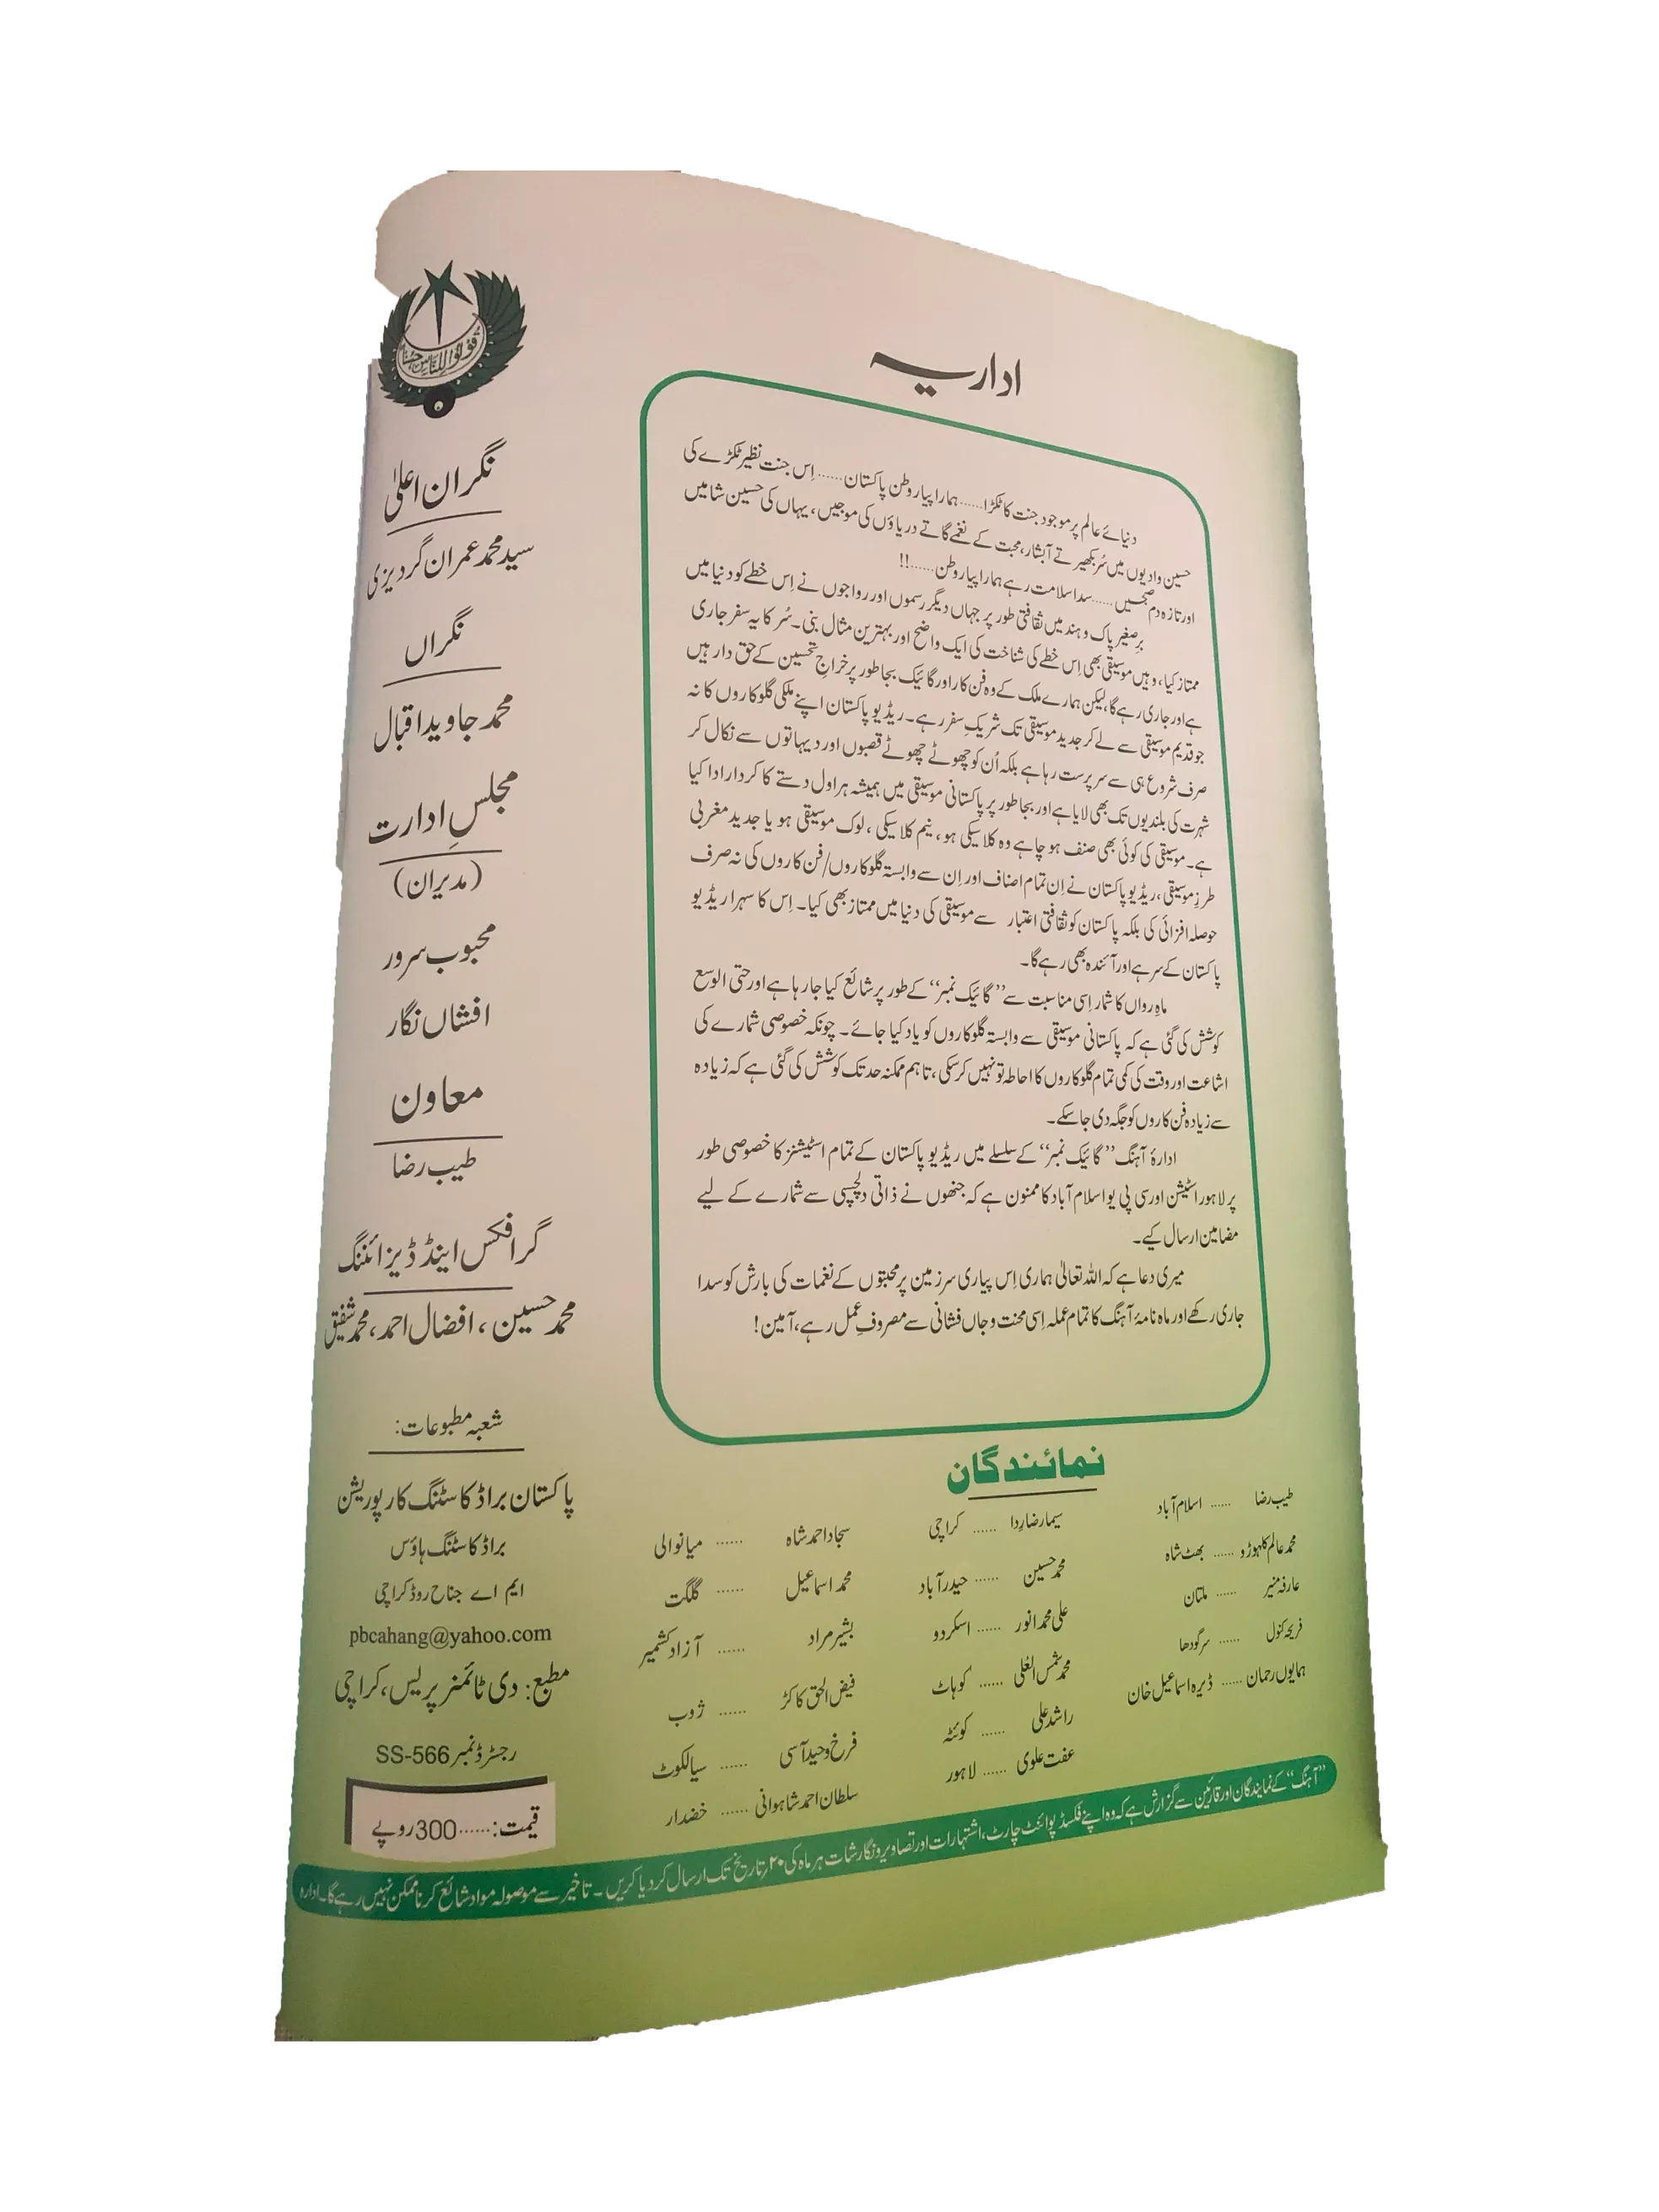 اداریہ
دنیائے عالم پر موجود جنت کا ٹکڑا......ہمارا پیارا وطن پاکستان......اِس جنت نظیر ٹکڑے کی
حسین وادیوں میں سُر بکھیرتے آبشار، محبت کے نغمے گاتے دریاؤں کی موجیں، یہاں کی حسین شامیں
اور تازہ دم صبحیں......سدا سلامت رہے ہمارا پیارا وطن......!!
برِصغیر پاک و ہند میں ثقافتی طور پر جہاں دیگر رسموں اور رواجوں نے اِس خطے کو دنیا میں
ممتاز کیا، وہیں موسیقی بھی اِس خطے کی شناخت کی ایک واضح اور بہترین مثال بنی۔ سُر کا یہ سفر جاری
ہے اور جاری رہے گا، لیکن ہمارے ملک کے وہ فن کار اور گائیک بجا طور پر خراجِ تحسین کے حق دار ہیں
جو قدیم موسیقی سے لے کر جدید موسیقی تک شریکِ سفر رہے۔ ریڈیو پاکستان اپنے ملکی گلوکاروں کا نہ
صرف شروع ہی سے سرپرست رہا ہے بلکہ اُن کو چھوٹے چھوٹے قصبوں اور دیہاتوں سے نکال کر
شہرت کی بلندیوں تک بھی لایا ہے اور بجا طور پر پاکستانی موسیقی میں ہمیشہ ہراول دستے کا کردار ادا کیا
ہے۔ موسیقی کی کوئی بھی صنف ہو چاہے وہ کلاسیکی ہو، نیم کلاسیکی، لوک موسیقی ہو یا جدید مغربی
طرزِ موسیقی، ریڈیو پاکستان نے اِن تمام اصناف اور اِن سے وابستہ گلوکاروں/فن کاروں کی نہ صرف
حوصلہ افزائی کی بلکہ پاکستان کو ثقافتی اعتبار سے موسیقی کی دنیا میں ممتاز بھی کیا۔ اِس کا سہرا ریڈیو
پاکستان کے سر ہے اور آئندہ بھی رہے گا۔
ماہِ رواں کا شمار اِسی مناسبت سے ’’گائیک نمبر‘‘ کے طور پر شائع کیا جا رہا ہے اور حتی الوسع
کوشش کی گئی ہے کہ پاکستانی موسیقی سے وابستہ گلوکاروں کو یاد کیا جائے۔ چونکہ خصوصی شمارے کی
اشاعت اور وقت کی کمی تمام گلوکاروں کا احاطہ تو نہیں کر سکی، تاہم ممکنہ حد تک کوشش کی گئی ہے کہ زیادہ
سے زیادہ فن کاروں کو جگہ دی جا سکے۔
ادارۂ آہنگ ’’گائیک نمبر‘‘ کے سلسلے میں ریڈیو پاکستان کے تمام اسٹیشنز کا خصوصی طور
پر لاہور اسٹیشن اور سی پی یو اسلام آباد کا ممنون ہے کہ جنھوں نے ذاتی دلچسپی سے شمارے کے لیے
مضامین ارسال کیے۔
میری دعا ہے کہ اللہ تعالیٰ ہماری اِس پیاری سرزمین پر محبتوں کے نغمات کی بارش کو سدا
جاری رکھے اور ماہ نامۂ آہنگ کا تمام عملہ اِسی محنت و جاں فشانی سے مصروفِ عمل رہے، آمین!
نمائندگان
طیب رضا ...... اسلام آباد
محمد عالم کلہوڑو ...... بھٹ شاہ
عارفہ منیر ...... ملتان
فریحہ کنول ...... سرگودھا
ہمایوں رحمان ...... ڈیرہ اسماعیل خان
سیما رضا رِدا ...... کراچی
محمد حسین ...... حیدرآباد
علی محمد انور ...... اسکردو
محمد شمس العُلی ...... کوہاٹ
راشد علی ...... کوئٹہ
عفت علوی ...... لاہور
سجاد احمد شاہ ...... میانوالی
محمد اسماعیل ...... گلگت
بشیر مراد ...... آزاد کشمیر
فیض الحق کاکڑ ...... ژوب
فرخ وحید آسی ...... سیالکوٹ
سلطان احمد شاہوانی ...... خضدار
قُولُوا لِلنَّاسِ حُسْنًا
نگران اعلیٰ
سید محمد عمران گردیزی
نگراں
محمد جاوید اقبال
مجلسِ ادارت
(مدیران)
محبوب سرور
افشاں نگار
معاون
طیب رضا
گرافکس اینڈ ڈیزائننگ
محمد حسین، افضال احمد، محمد شفیق
شعبہ مطبوعات:
پاکستان براڈ کاسٹنگ کارپوریشن
براڈ کاسٹنگ ہاؤس
ایم اے جناح روڈ کراچی
pbcahang@yahoo.com
مطبع: دی ٹائمنر پریس، کراچی
رجسٹرڈ نمبر SS-566
قیمت:......300 روپے
’’آہنگ‘‘ کے نمایندگان اور قارئین سے گزارش ہے کہ وہ اپنے فکسڈ پوائنٹ چارٹ، اشتہارات اور تصاویر و نگارشات ہر ماہ کی ۲۰ تاریخ تک ارسال کر دیا کریں۔ تاخیر سے موصولہ مواد شائع کرنا ممکن نہیں رہے گا۔ ادارہ